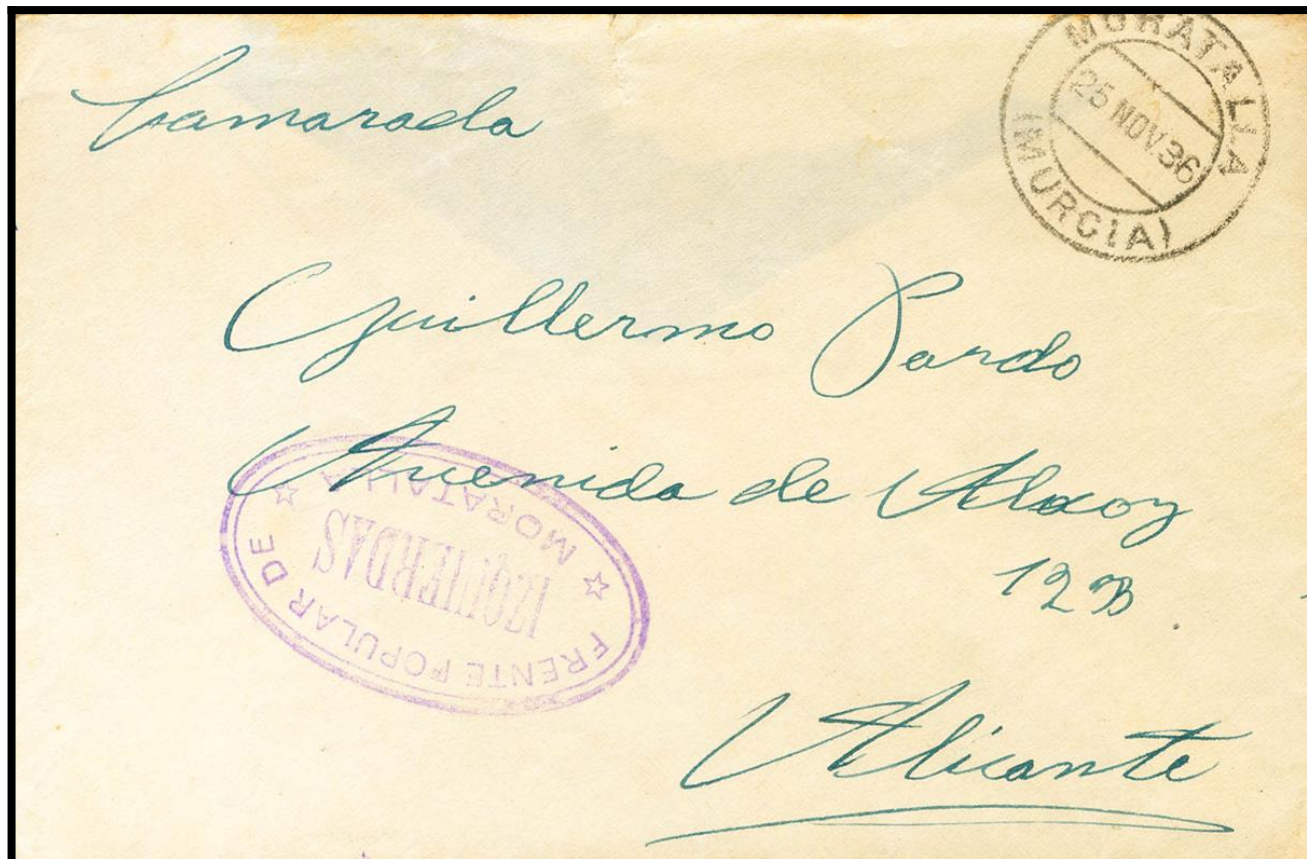 Camarada
MORATALLA
25 NOV.36
(MURCIA)
Guillermo Pardo
Avenida de Alcoy
12B
Alicante
FRENTE POPULAR DE
IZQUIERDAS
MORATALLA